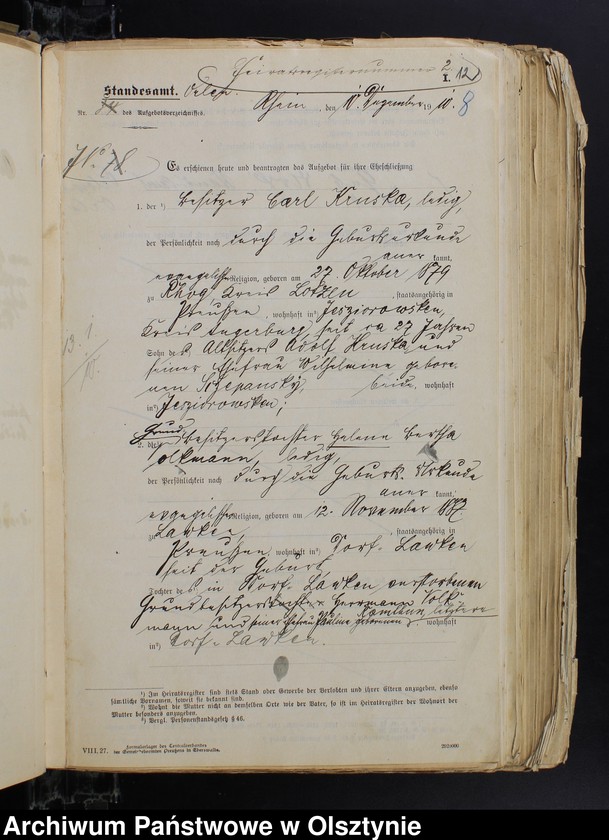 Heiratsregisternummer 2
I. 12
Standesamt.
Rhein, den 10. Dezember 1910. 8
Nr. des Aufgebotsverzeichnisses.
Es erschienen heute und beantragten das Aufgebot für ihre Eheschließung
1. der ¹) Besitzer Carl Kruska, ledig,
der Persönlichkeit nach durch die Geburtsurkunde
aner kannt,
evangelischer Religion, geboren am 27. Oktober 1879
zu Rhog, Kreis Lötzen, staatsangehörig in
Preußen, wohnhaft in ²) Jesziorowsken,
Kreis Angerburg, seit ca 27 Jahren
Sohn des Altsitzers Adolf Kruska und
seiner Ehefrau Wilhelmine gebore-
nen Sczepansky, beide, wohnhaft
in ²) Jesziorowsken;
Grund-
2. die Besitzerstochter Helene Bertha
Volkmann, ledig,
der Persönlichkeit nach durch die Geburts-Urkunde
aner kannt,
evangelischer Religion, geboren am 12. November 1887
zu Lawken, staatsangehörig in
Preußen, wohnhaft in ²) Dorf-Lawken
seit der Geburt,
Tochter des in Dorf-Lawken verstorbenen
Grundbesitzers Herrmann Volk-
mann und seiner Ehefrau geborenen letztere wohnhaft
in ²) Dorf-Lawken.
¹) Im Heiratsregister sind stets Stand oder Gewerbe der Verlobten und ihrer Eltern anzugeben, ebenso
sämtliche Vornamen, soweit sie bekannt sind.
²) Wohnt die Mutter nicht an demselben Orte wie der Vater, so ist im Heiratsregister der Wohnort der
Mutter besonders anzugeben.
³) Vergl. Personenstandsgesetz § 46.
VIII. 27. Formularlager des Centralverbandes
der Gemeindebeamten Preußens in Eberswalde.
Archiwum Państwowe w Olsztynie